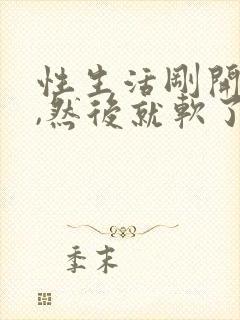 性生活剛開
,然後就軟了
季末